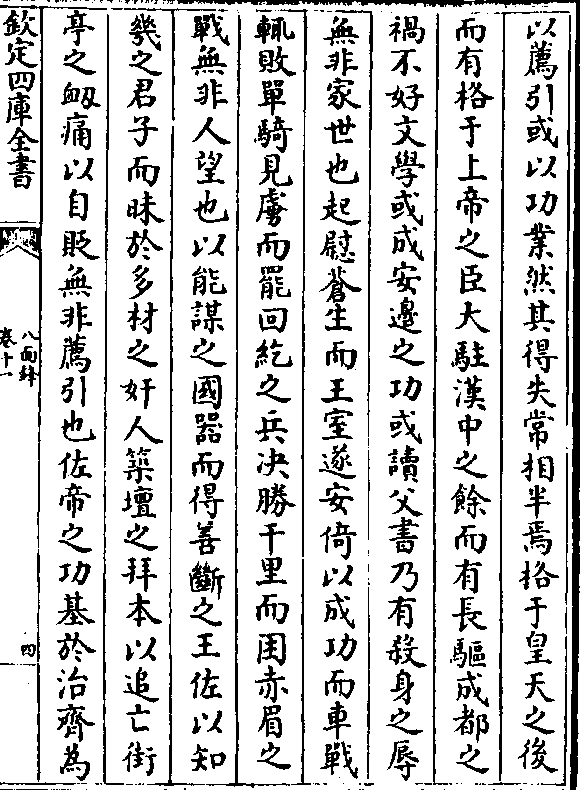 以薦引或以功業然其得失常相半焉格于皇天之後
而有格于上帝之臣大駐漢中之餘而有長驅成都之
禍不好文學或成安邊之功或讀父書乃有殺身之辱
無非家世也起慰蒼生而王室遂安倚以成功而車戰
輒敗單騎見虜而罷回紇之兵決勝千里而困赤眉之
戰無非人望也以能謀之國器而得善斷之王佐以知
幾之君子而昧於多材之奸人築壇之拜本以追亡街
亭之衂痛以自貶無非薦引也佐帝之功基於治齊為
欽定四庫全書
八面鋒
卷十一
四